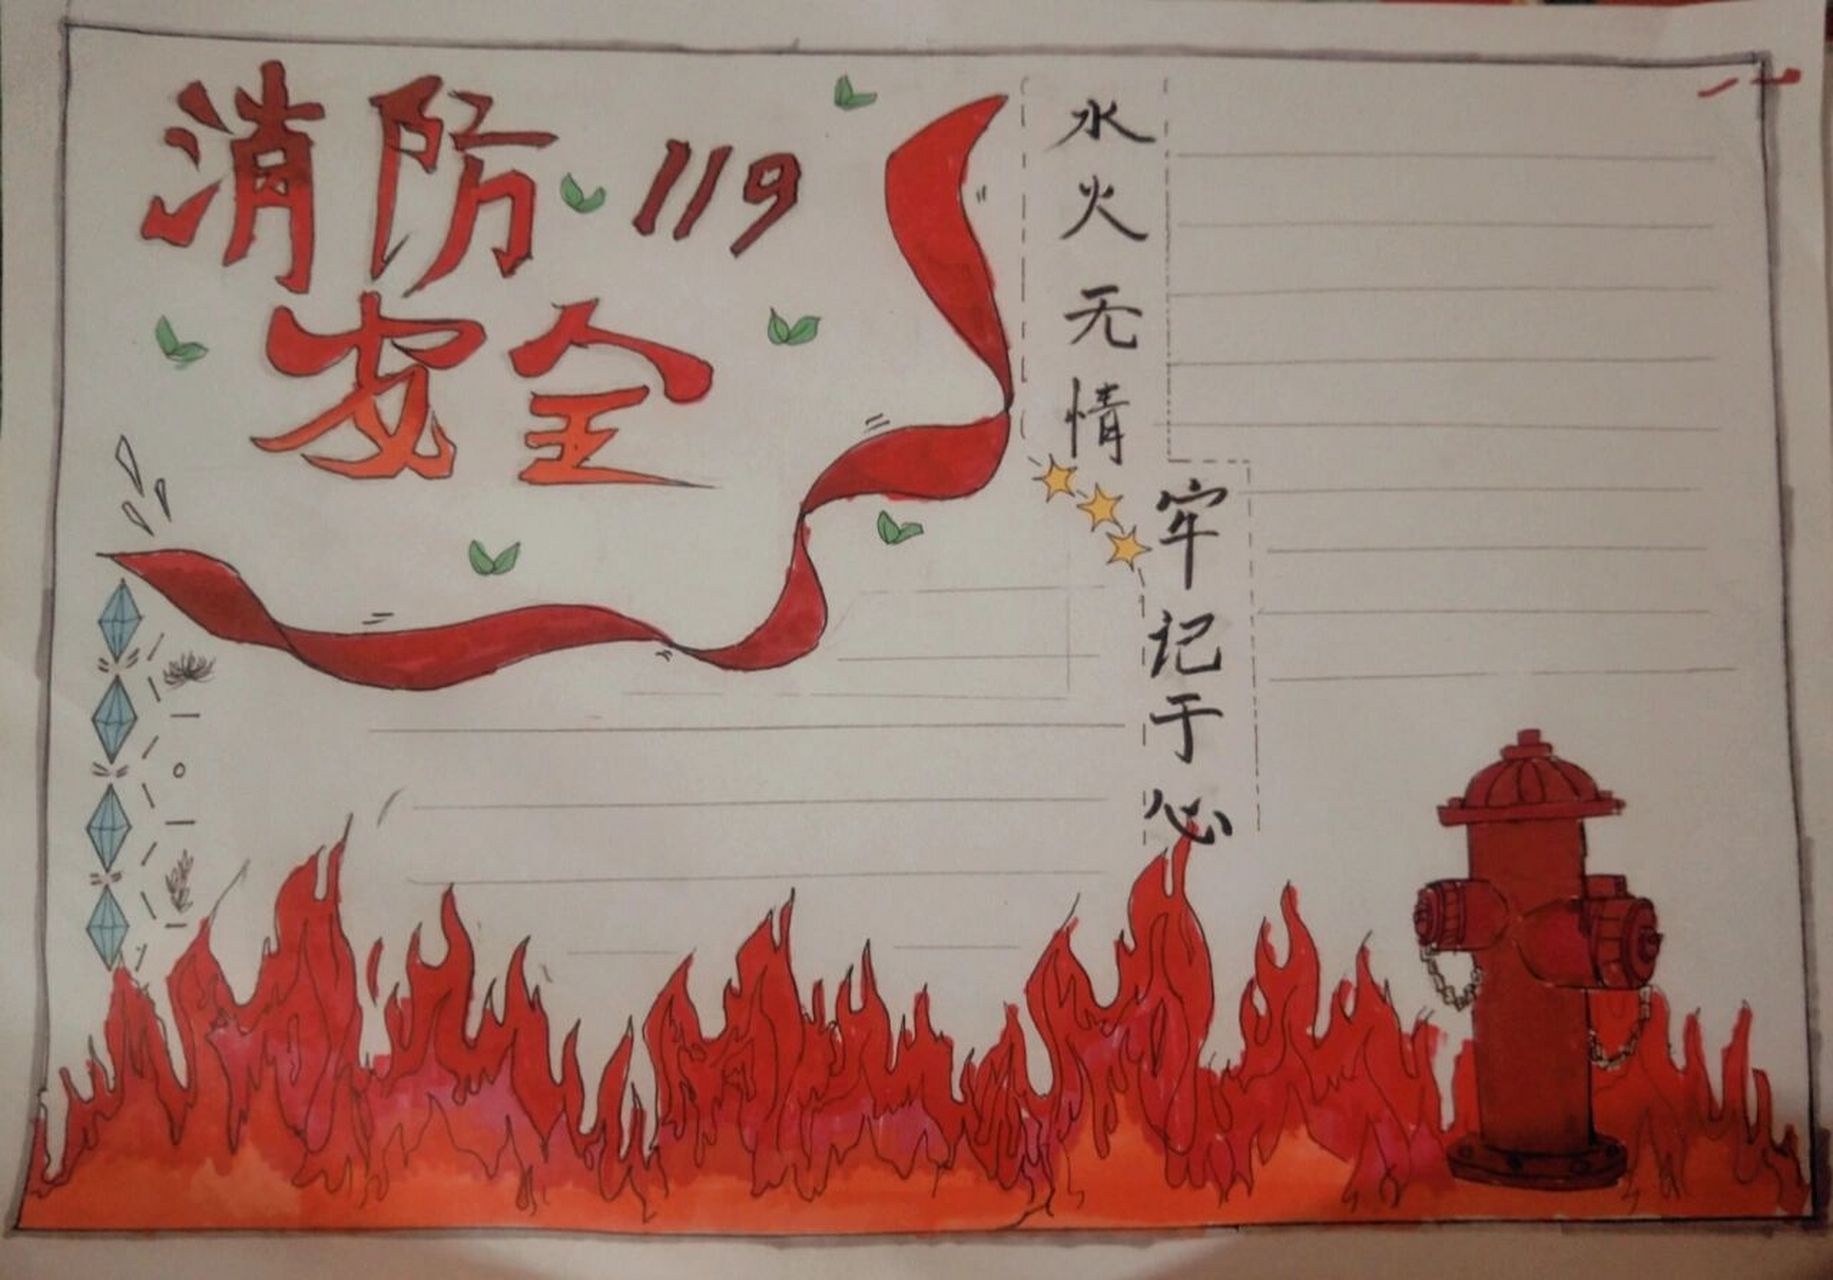 消防 119
安全
水火无情
牢记于心